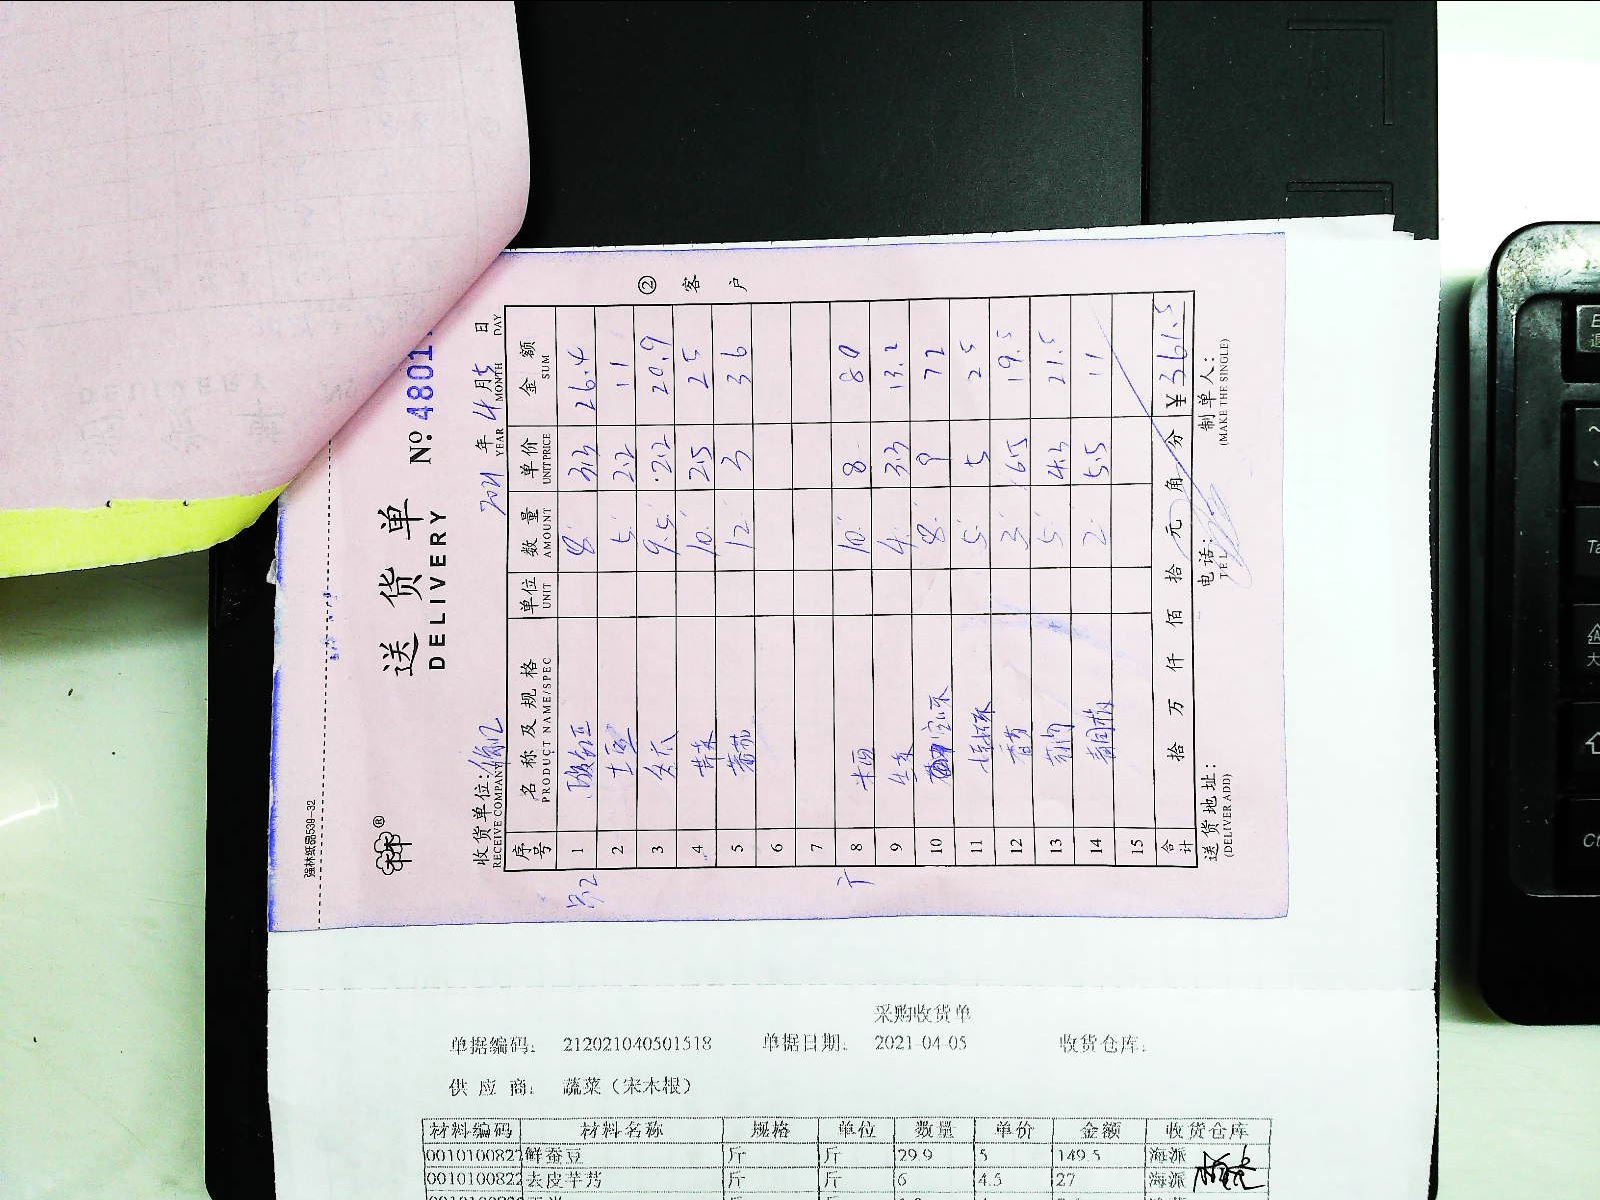 强林纸品539-32
送货单
DELIVERY
№ 4801
收货单位:
RECEIVE COMPANY
2021 年 4 月 5 日
YEAR MONTH DAY
序号 名称及规格 单位 数量 单价 金额
PRODUCT NAME/SPEC UNIT AMOUNT UNITPRICE SUM
1 8 3.3 26.4
2 土豆 5 2.2 11
3 9.5 2.2 20.9
4 芹菜 10 2.5 25
5 12 3 36
6
7
8 10 8 80
9 生菜 4 3.3 13.2
10 8 9 72
11 5 5 25
12 香芹 3 6.5 19.5
13 5 4.3 21.5
14 2 5.5 11
15
合计 拾 万 仟 佰 拾 元 角 分 ¥361.5
送货地址:
(DELIVER ADD)
电话:
TEL
制单人:
(MAKE THE SINGLE)
② 客户
采购收货单
单据编码: 212021040501518 单据日期: 2021-04-05 收货仓库:
供应商: 蔬菜(宋木根)
材料编码 材料名称 规格 单位 数量 单价 金额 收货仓库
0010100827 鲜蚕豆 斤 斤 29.9 5 149.5 海派
0010100822 去皮芋艿 斤 斤 6 4.5 27 海派